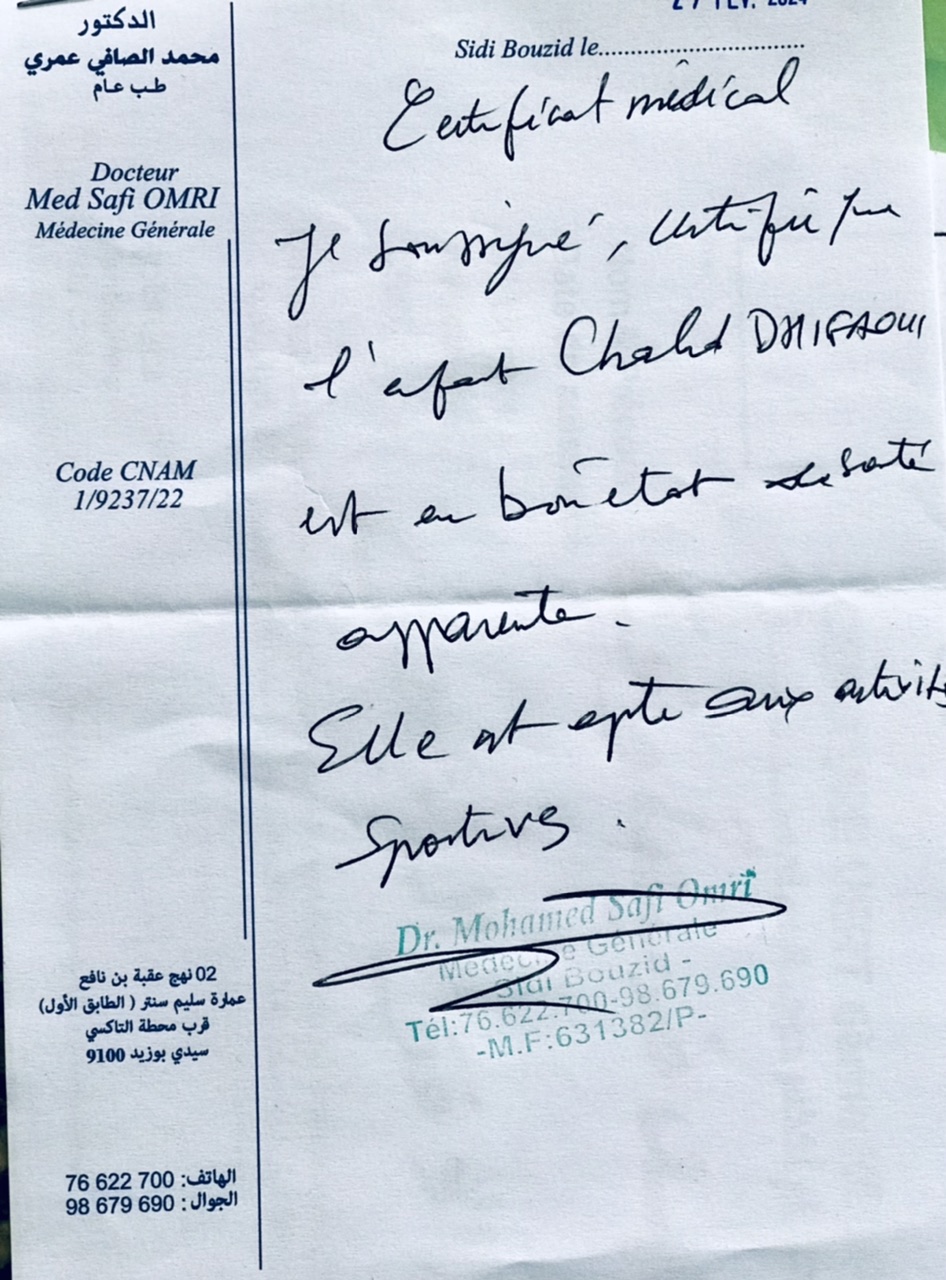 الدكتور
محمد الصافي عمري
طب عام
Docteur
Med Safi OMRI
Médecine Générale
Code CNAM
1/9237/22
02 نهج عقبة بن نافع
عمارة سليم سنتر ( الطابق الأول)
قرب محطة التاكسي
سيدي بوزيد 9100
الهاتف: 700 622 76
الجوال : 690 679 98
Sidi Bouzid le
Certificat médical
Je soussigné, certifie que
l'enfant DHIFAOUI
est en bon état de santé
apparente.
Elle est apte aux
Sportives.
Dr. Mohamed Safi Omri
Médecine Générale
Sidi Bouzid -
Tél:76.622.700-98.679.690
-M.F:631382/P-